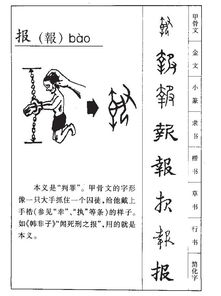 报（報）bào
本义是“判罪”。甲骨文的字形
像一只大手抓住一个囚徒，给他戴上
手梏（参见“幸”、“执”等条）的样子。
如《韩非子》“闻死刑之报”，用的就是
本义。
甲骨文
金文
小篆
隶书
楷书
草书
行书
简化字
報
報
报
報
报